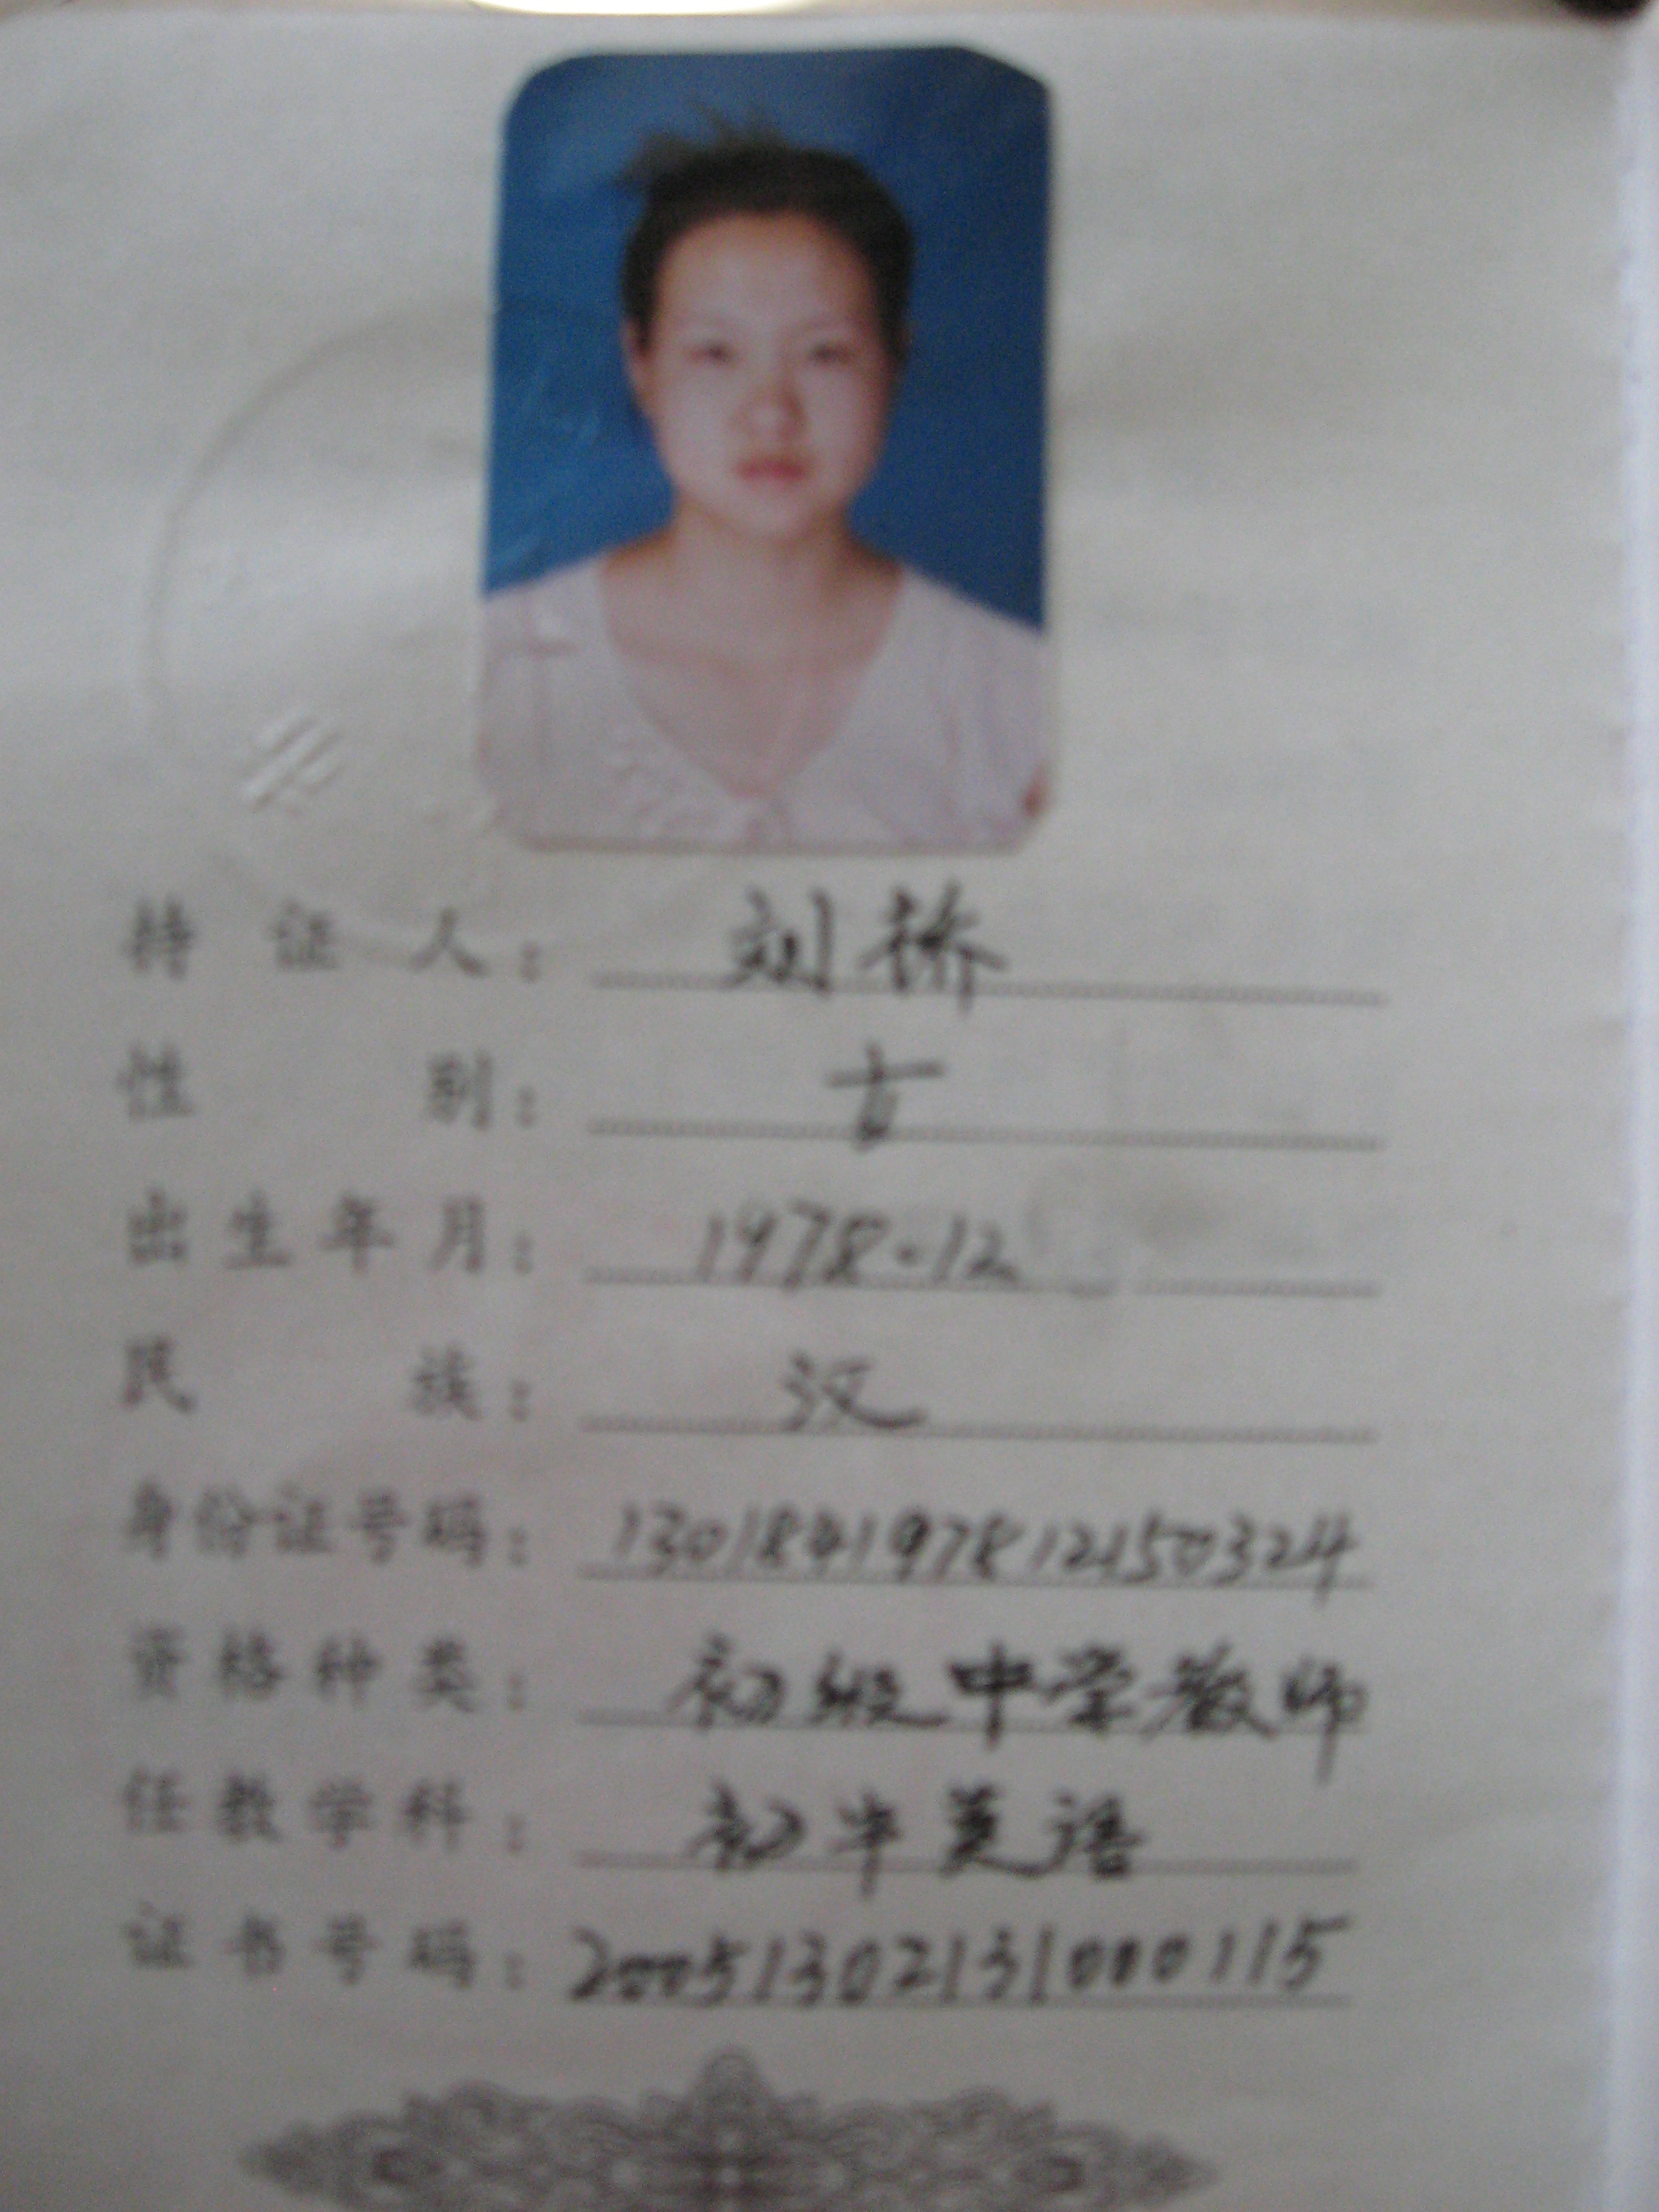 持证人：刘桥
性别：女
出生年月：1978.12
民族：汉
身份证号码：130184197812150324
资格种类：初级中学教师
任教学科：初中英语
证书号码：20051302131000115